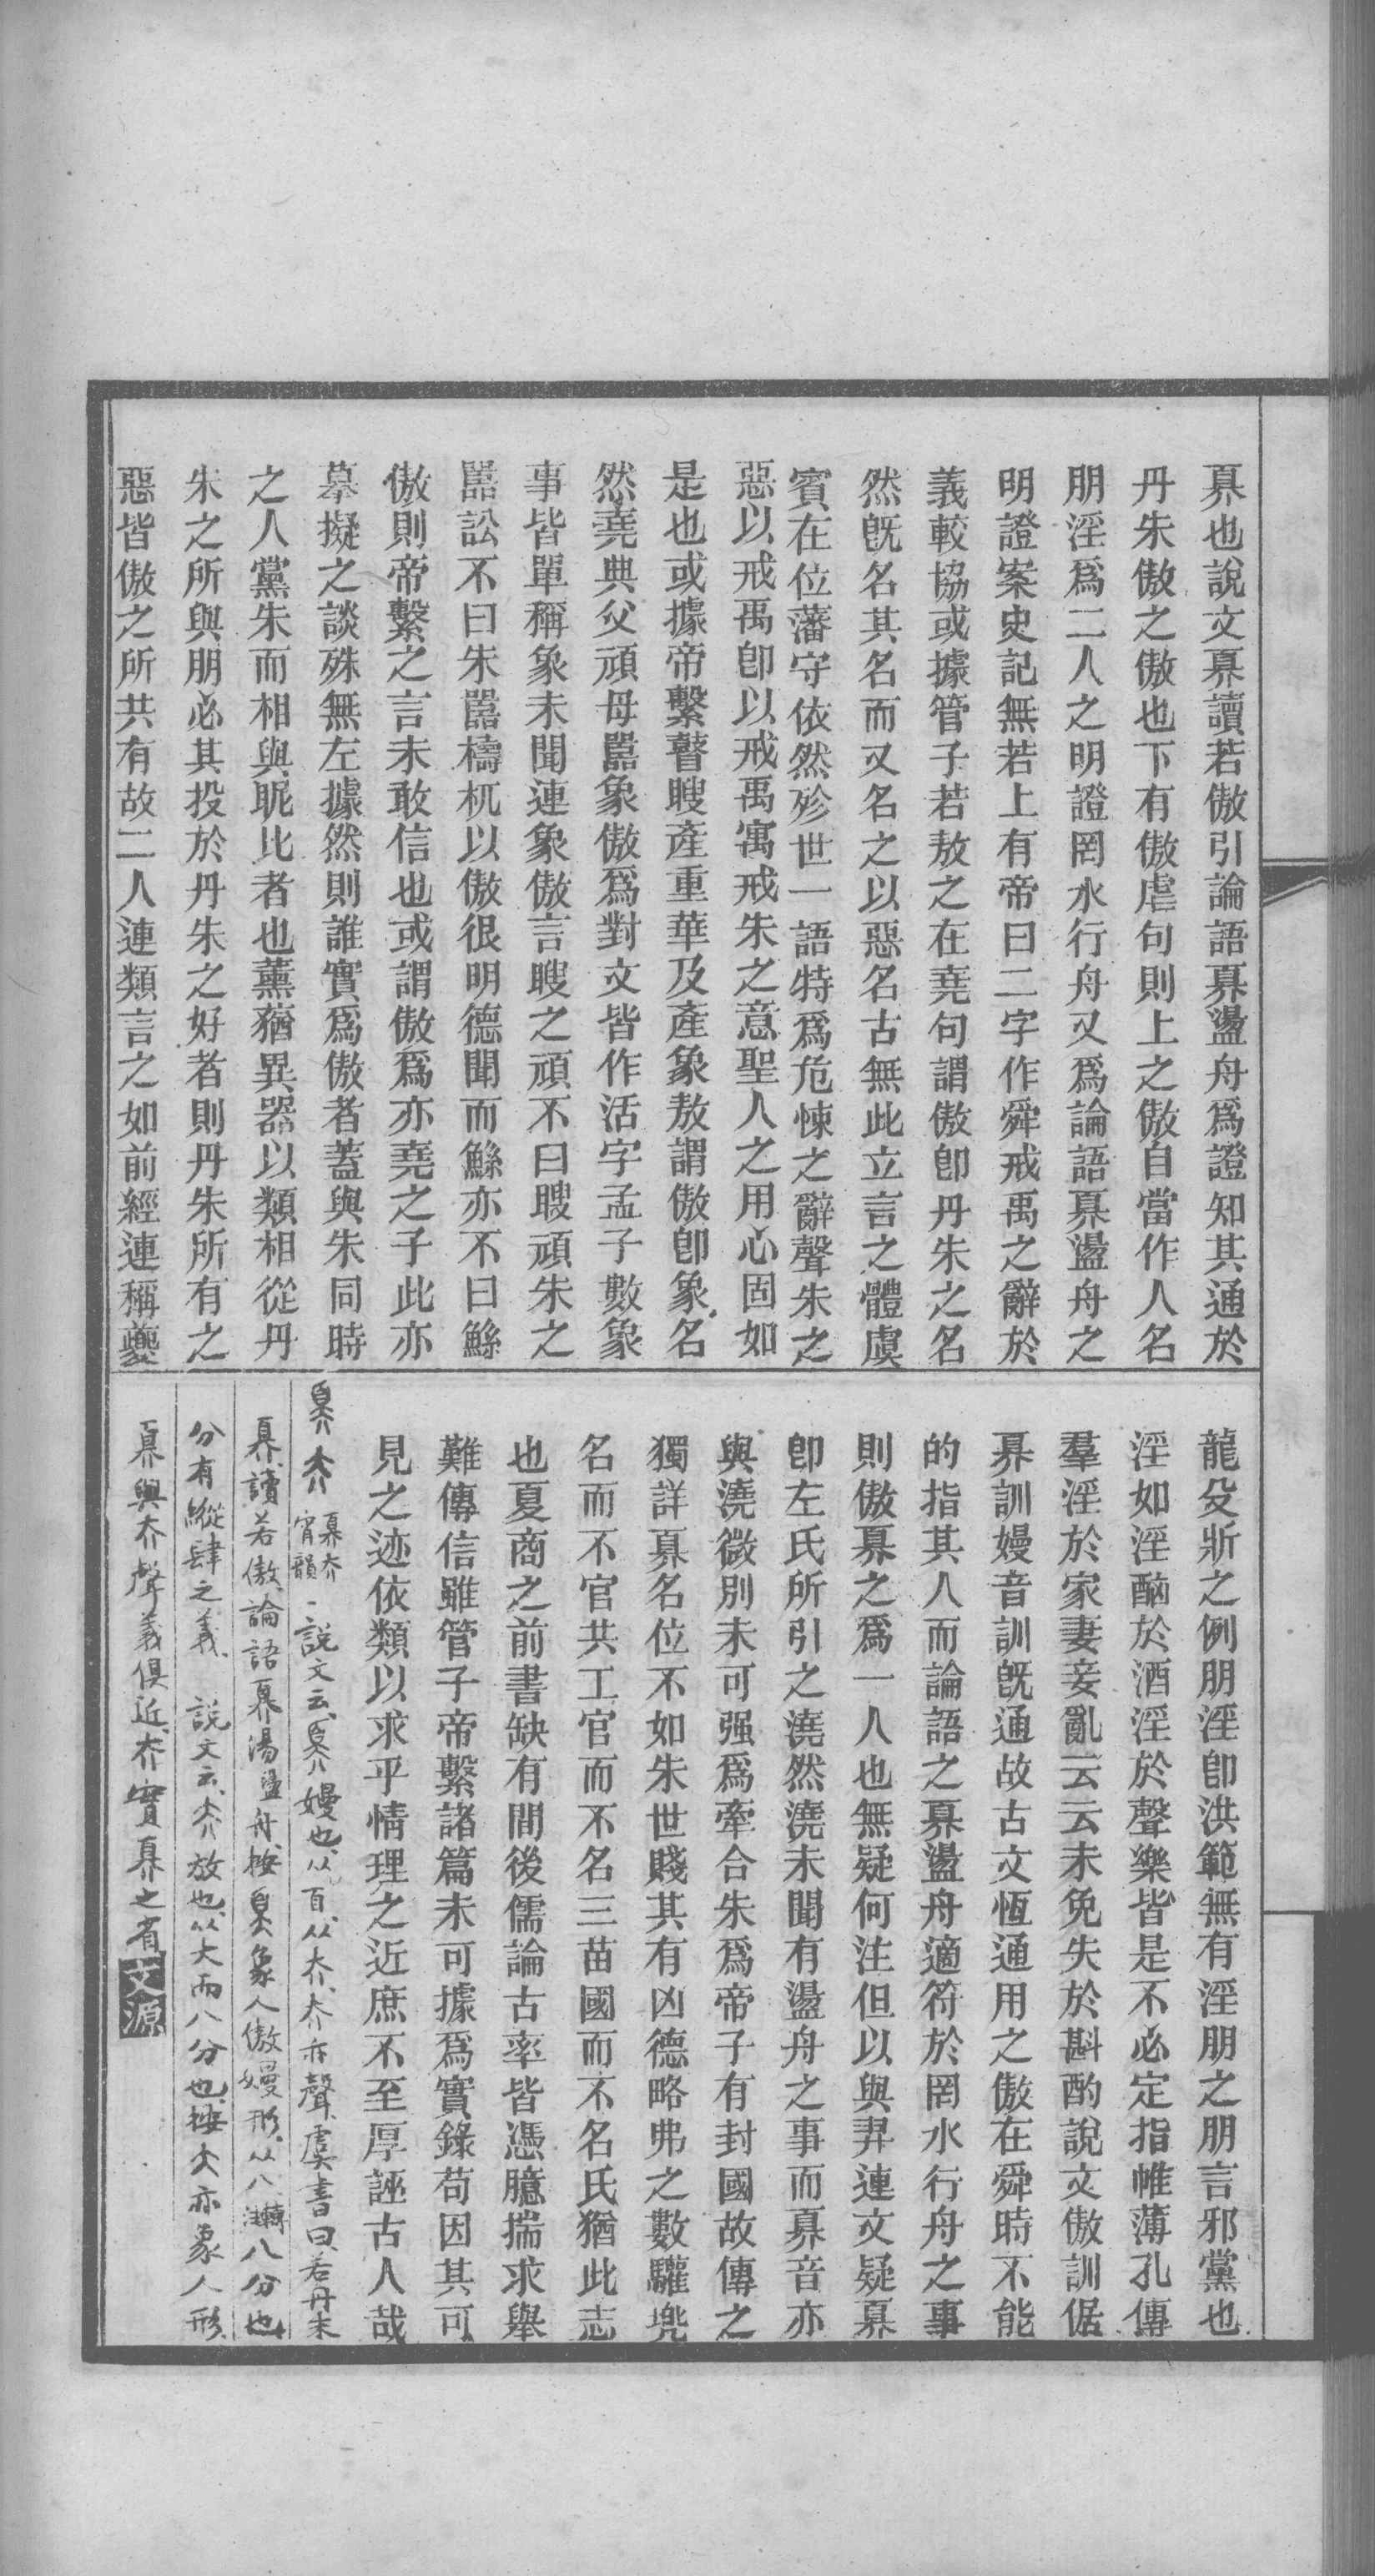 奡也說文奡讀若傲引論語奡盪舟爲證知其通於
丹朱傲之傲也下有傲虐句則上之傲自當作人名
朋淫爲二人之明證罔水行舟又爲論語奡盪舟之
明證案史記無若上有帝曰二字作舜戒禹之辭於
義較協或據管子若敖之在堯句謂傲卽丹朱之名
然旣名其名而又名之以惡名古無此立言之體虞
賓在位藩守依然殄世一語特爲危悚之辭聲朱之
惡以戒禹卽以戒禹寓戒朱之意聖人之用心固如
是也或據帝繫瞽瞍產重華及產象敖謂傲卽象名
然堯典父頑母嚚象傲爲對文皆作活字孟子數象
事皆單稱象未聞連象傲言瞍之頑不曰瞍頑朱之
嚚訟不曰朱嚚檮杌以傲很明德聞而鯀亦不曰鯀
傲則帝繫之言未敢信也或謂傲爲亦堯之子此亦
摹擬之談殊無左據然則誰實爲傲者蓋與朱同時
之人黨朱而相與昵比者也薰蕕異器以類相從丹
朱之所與朋必其投於丹朱之好者則丹朱所有之
惡皆傲之所共有故二人連類言之如前經連稱夔
龍殳斨之例朋淫卽洪範無有淫朋之朋言邪黨也
淫如淫酗於酒淫於聲樂皆是不必定指帷薄孔傳
羣淫於家妻妾亂云云未免失於斟酌說文傲訓倨
奡訓嫚音訓旣通故古文恆通用之傲在舜時不能
的指其人而論語之奡盪舟適符於罔水行舟之事
則傲奡之爲一人也無疑何注但以與羿連文疑奡
卽左氏所引之澆然澆未聞有盪舟之事而奡音亦
與澆微別未可强爲牽合朱爲帝子有封國故傳之
獨詳奡名位不如朱世賤其有凶德略弗之數驩兠
名而不官共工官而不名三苗國而不名氏猶此志
也夏商之前書缺有間後儒論古率皆憑臆揣求舉
難傳信雖管子帝繫諸篇未可據爲實錄苟因其可
見之迹依類以求平情理之近庶不至厚誣古人哉
奡夰 奡夰宵韻 說文云奡嫚也从百从夰夰亦聲虞書曰若丹朱
奡讀若傲論語奡湯盪舟按象人傲嫚形从八轉注八分也
分有縱肆之義 說文云夰放也从大而八分也按大亦象人形
奡與夰聲義俱近夰實奡之省 文源